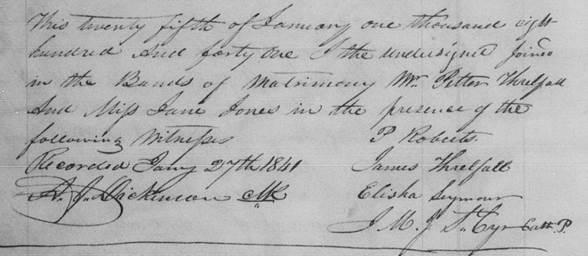 This twenty fifth of January one thousand eight
hundred And forty one I the undersigned joined
in the Bands of Matrimony Mr. Petter Threlfall
And Miss Jane Jones in the presence of the
following Witnesses P. Roberts.
Recorded Jany 27th 1841 James Threlfall
A. J. Dickinson Clk Elisha Seymour
J. M. J. St. Cyr Cath. P.